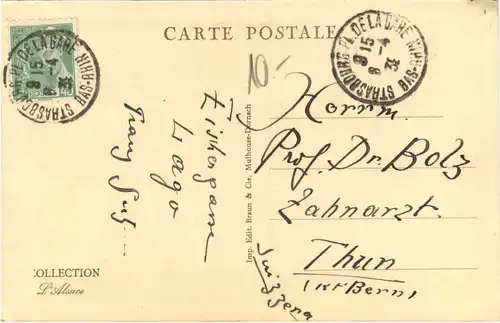 CARTE POSTALE
STRASBOURG PL. DE LA GARE
BAS-RHIN
8 15
8 -4
STRASBOURG PL. DE LA GARE
BAS-RHIN
8 15
8 -4
10.-
Lago
Imp. Edit. Braun & Cie, Mulhouse-Dornach
Herrn
Prof. Dr. Bolz
Zahnarzt.
Thun
(Kt Bern)
Suizzera
COLLECTION
L'Alsace